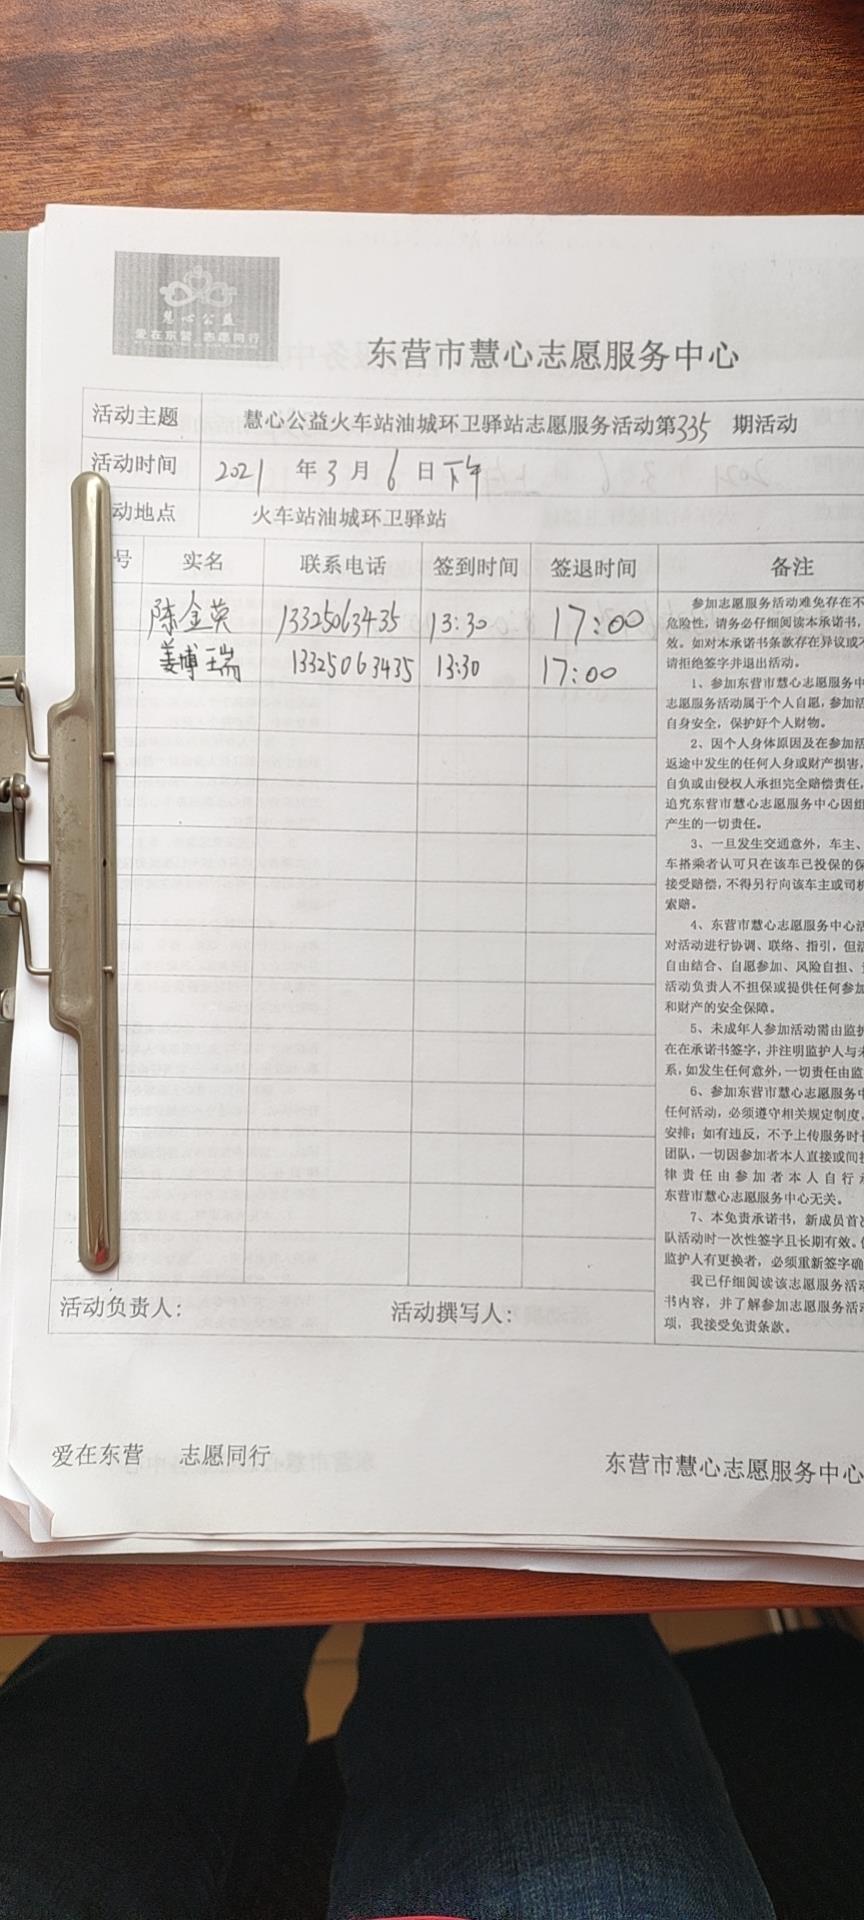 慧心公益
爱在东营 志愿同行
东营市慧心志愿服务中心
活动主题 慧心公益火车站油城环卫驿站志愿服务活动第335 期活动
活动时间 2021 年3月6日下午
动地点 火车站油城环卫驿站
号 实名 联系电话 签到时间 签退时间 备注
陈金英 13325063435 13:30 17:00
姜博瑞 13325063435 13:30 17:00
参加志愿服务活动难免存在不
危险性，请务必仔细阅读本承诺书，
效。如对本承诺书条款存在异议或不
请拒绝签字并退出活动。
1、参加东营市慧心志愿服务中
志愿服务活动属于个人自愿，参加活
自身安全，保护好个人财物。
2、因个人身体原因及在参加活
返途中发生的任何人身或财产损害，
自负或由侵权人承担完全赔偿责任，
追究东营市慧心志愿服务中心因组
产生的一切责任。
3、一旦发生交通意外，车主、
车搭乘者认可只在该车已投保的保
接受赔偿，不得另行向该车主或司机
索赔。
4、东营市慧心志愿服务中心活
对活动进行协调、联络、指引，但活
自由结合、自愿参加、风险自担、
活动负责人不担保或提供任何参加
和财产的安全保障。
5、未成年人参加活动需由监护
在在承诺书签字，并注明监护人与未
系，如发生任何意外，一切责任由监
6、参加东营市慧心志愿服务中
任何活动，必须遵守相关规定制度，
安排；如有违反，不予上传服务时
团队，一切因参加者本人直接或间接
律责任由参加者本人自行承
东营市慧心志愿服务中心无关。
7、本免责承诺书，新成员首次
队活动时一次性签字且长期有效。
监护人有更换者，必须重新签字确
我已仔细阅读该志愿服务活动
书内容，并了解参加志愿服务活动
项，我接受免责条款。
活动负责人： 活动撰写人：
爱在东营 志愿同行 东营市慧心志愿服务中心